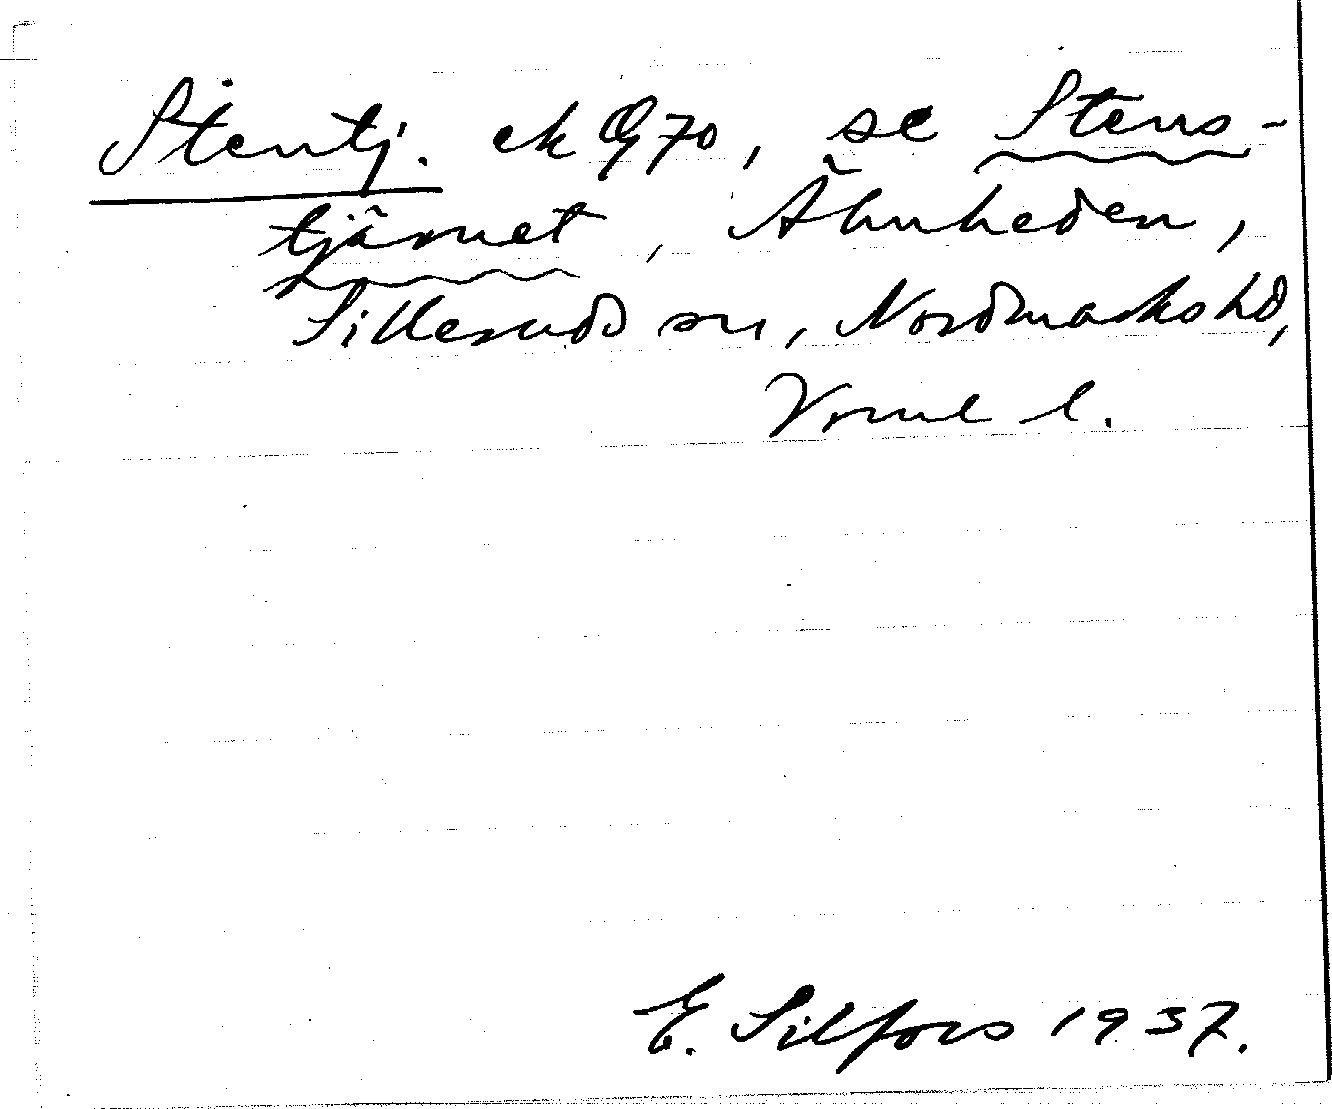 Stentj. ek Q 70, se Stens-
tjärnet, Åhnheden,
Sillerud sn, Nordmarks hd,
Vrml l.
E. Silfors 1937.